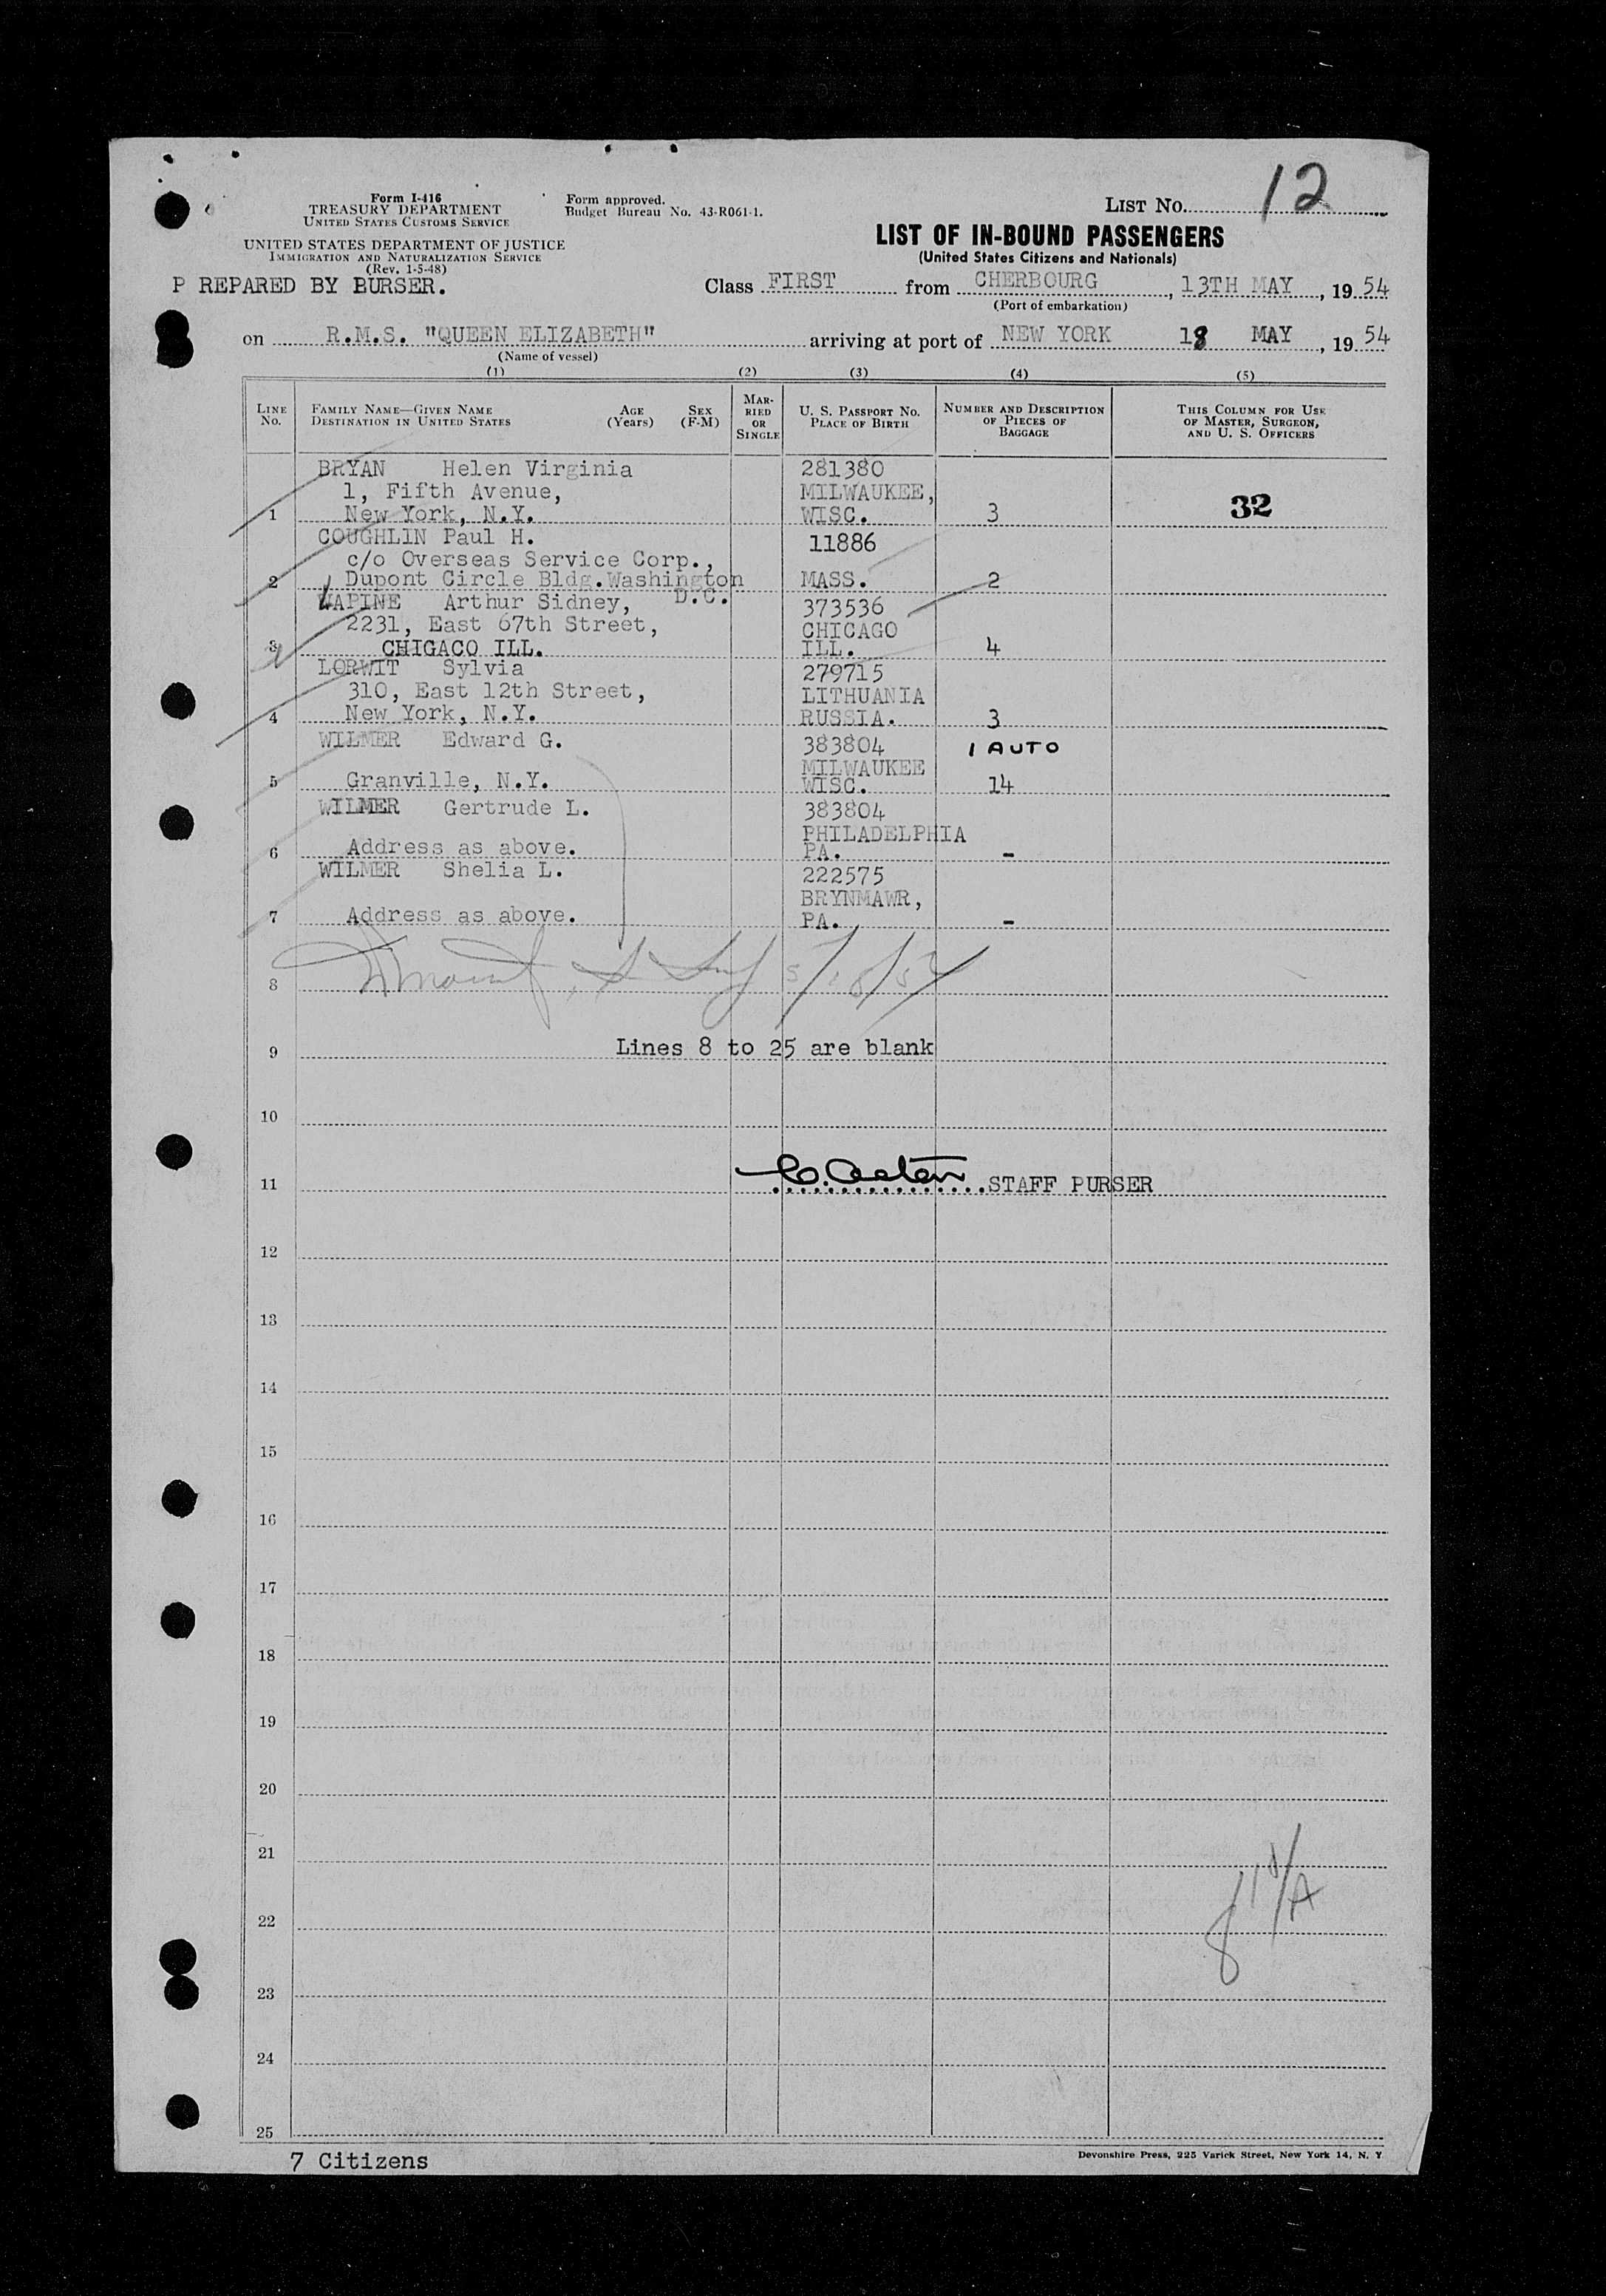 Form I-416
TREASURY DEPARTMENT
UNITED STATES CUSTOMS SERVICE
UNITED STATES DEPARTMENT OF JUSTICE
IMMIGRATION AND NATURALIZATION SERVICE
(Rev. 1-5-48)
Form approved.
Budget Bureau No. 43-R061-1.
LIST NO. 12
LIST OF IN-BOUND PASSENGERS
(United States Citizens and Nationals)
P REPARED BY BURSER.
Class FIRST from CHERBOURG, 13TH MAY, 19 54
(Port of embarkation)
on R.M.S. "QUEEN ELIZABETH" arriving at port of NEW YORK 18 MAY, 19 54
(Name of vessel)
(1) (2) (3) (4) (5)
LINE NO. FAMILY NAME—GIVEN NAME DESTINATION IN UNITED STATES AGE (Years) SEX (F-M) MARRIED OR SINGLE U. S. PASSPORT NO. PLACE OF BIRTH NUMBER AND DESCRIPTION OF PIECES OF BAGGAGE THIS COLUMN FOR USE OF MASTER, SURGEON, AND U. S. OFFICERS
BRYAN Helen Virginia 281380
1, Fifth Avenue, MILWAUKEE,
1 New York, N.Y. WISC. 3 32
COUGHLIN Paul H. 11886
c/o Overseas Service Corp.,
2 Dupont Circle Bldg.Washington MASS. 2
D.C.
LAPINE Arthur Sidney, 373536
2231, East 67th Street, CHICAGO
3 CHIGACO ILL. ILL. 4
LORWIT Sylvia 279715
310, East 12th Street, LITHUANIA
4 New York, N.Y. RUSSIA. 3
WILMER Edward G. 383804 1 AUTO
MILWAUKEE
5 Granville, N.Y. WISC. 14
WILMER Gertrude L. 383804
PHILADELPHIA
6 Address as above. PA. -
WILMER Shelia L. 222575
BRYNMAWR,
7 Address as above. PA. -
8 5/18/54
9 Lines 8 to 25 are blank
10
11 STAFF PURSER
12
13
14
15
16
17
18
19
20
21
22
23
24
25
7 Citizens
Devonshire Press, 225 Varick Street, New York 14, N. Y.